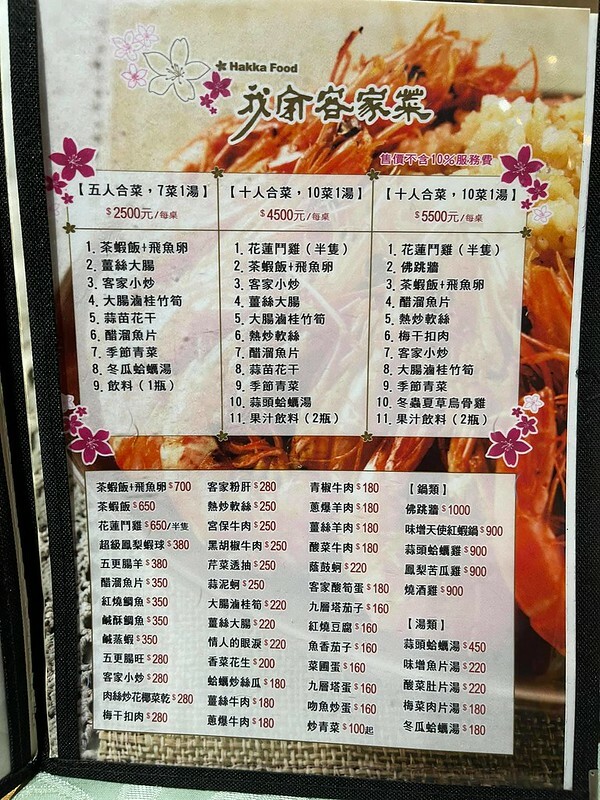 Hakka Food
我爺客家菜
售價不含10%服務費
【五人合菜，7菜1湯】
$2500元/每桌
1. 茶蝦飯+飛魚卵
2. 薑絲大腸
3. 客家小炒
4. 大腸滷桂竹筍
5. 蒜苗花干
6. 醋溜魚片
7. 季節青菜
8. 冬瓜蛤蠣湯
9. 飲料（1瓶）
【十人合菜，10菜1湯】
$4500元/每桌
1. 花蓮鬥雞（半隻）
2. 茶蝦飯+飛魚卵
3. 客家小炒
4. 薑絲大腸
5. 大腸滷桂竹筍
6. 熱炒軟絲
7. 醋溜魚片
8. 蒜苗花干
9. 季節青菜
10. 蒜頭蛤蠣湯
11. 果汁飲料（2瓶）
【十人合菜，10菜1湯】
$5500元/每桌
1. 花蓮鬥雞（半隻）
2. 佛跳牆
3. 茶蝦飯+飛魚卵
4. 醋溜魚片
5. 熱炒軟絲
6. 梅干扣肉
7. 客家小炒
8. 大腸滷桂竹筍
9. 季節青菜
10. 冬蟲夏草烏骨雞
11. 果汁飲料（2瓶）
茶蝦飯+飛魚卵$700
茶蝦飯$650
花蓮鬥雞$650/半隻
超級鳳梨蝦球$380
五更腸羊$380
醋溜魚片$350
紅燒鯛魚$350
鹹酥鯛魚$350
鹹蒸蝦$350
五更腸旺$280
客家小炒$280
肉絲炒花椰菜乾$280
梅干扣肉$280
客家粉肝$280
熱炒軟絲$250
宮保牛肉$250
黑胡椒牛肉$250
芹菜透抽$250
蒜泥蚵$250
大腸滷桂筍$220
薑絲大腸$220
情人的眼淚$220
香菜花生$200
蛤蠣炒絲瓜$180
薑絲牛肉$180
蔥爆牛肉$180
青椒牛肉$180
蔥爆羊肉$180
薑絲羊肉$180
酸菜牛肉$180
蔭鼓蚵$220
客家酸筍蛋$180
九層塔茄子$160
紅燒豆腐$160
魚香茄子$160
菜圃蛋$160
九層塔蛋$160
吻魚炒蛋$160
炒青菜$100起
【鍋類】
佛跳牆$1000
味增天使紅蝦鍋$900
蒜頭蛤蠣雞$900
鳳梨苦瓜雞$900
燒酒雞$900
【湯類】
蒜頭蛤蠣湯$450
味增魚片湯$220
酸菜肚片湯$220
梅菜肉片湯$180
冬瓜蛤蠣湯$180